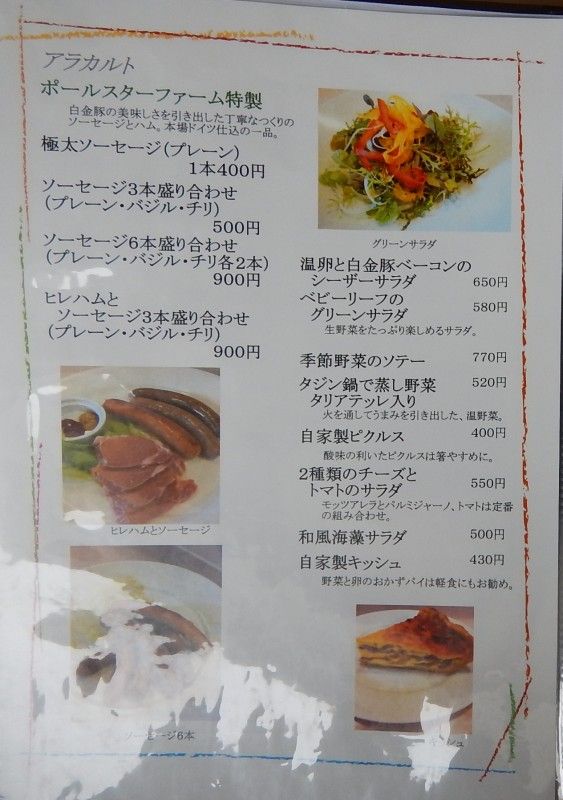 アラカルト
ポールスターファーム特製
白金豚の美味しさを引き出した丁寧なつくりの
ソーセージとハム。本場ドイツ仕込の一品。
極太ソーセージ(プレーン)
1本400円
ソーセージ3本盛り合わせ
(プレーン・バジル・チリ)
500円
ソーセージ6本盛り合わせ
(プレーン・バジル・チリ各2本)
900円
ヒレハムと
ソーセージ3本盛り合わせ
(プレーン・バジル・チリ)
900円
ヒレハムとソーセージ
ソーセージ6本
グリーンサラダ
温卵と白金豚ベーコンの
シーザーサラダ 650円
ベビーリーフの
グリーンサラダ 580円
生野菜をたっぷり楽しめるサラダ。
季節野菜のソテー 770円
タジン鍋で蒸し野菜 520円
タリアテッレ入り
火を通してうまみを引き出した、温野菜。
自家製ピクルス 400円
酸味の利いたピクルスは箸やすめに。
2種類のチーズと
トマトのサラダ 550円
モッツアレラとパルミジャーノ、トマトは定番
の組み合わせ。
和風海藻サラダ 500円
自家製キッシュ 430円
野菜と卵のおかずパイは軽食にもお勧め。